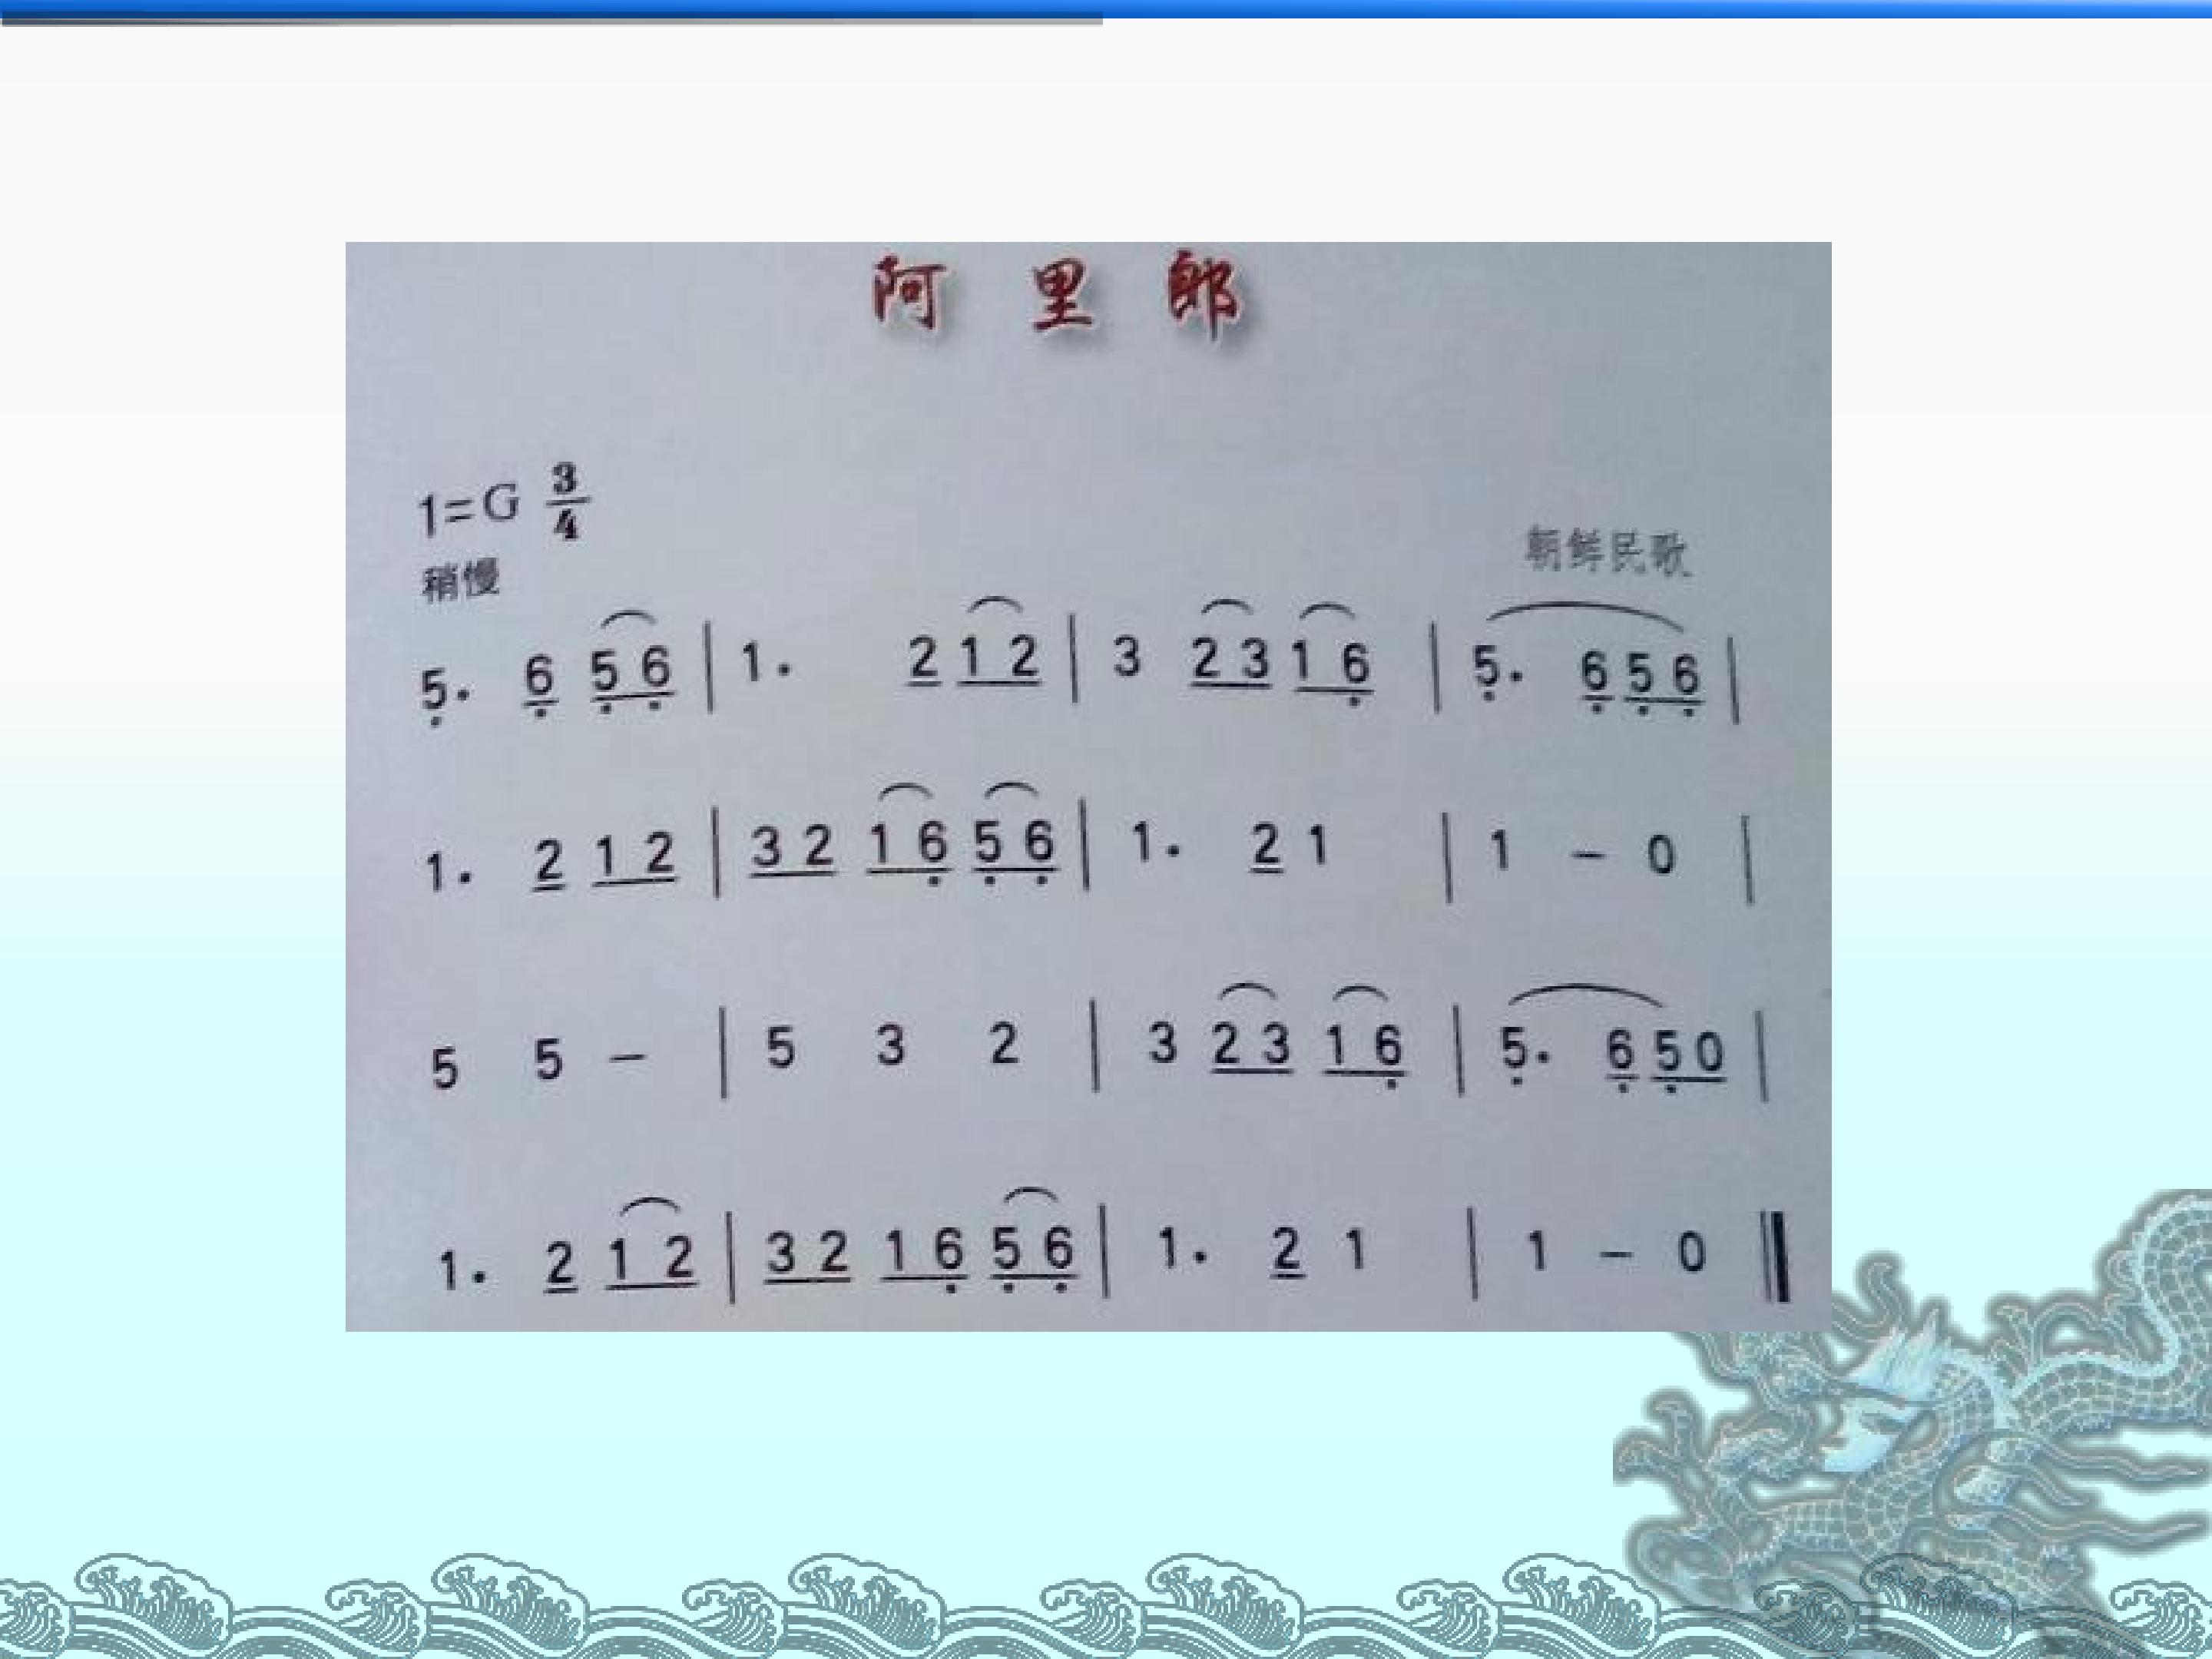 阿里郎
1=G 3/4
朝鲜民歌
稍慢
5̣. 6̣ 5̣ 6̣ | 1. 2 1 2 | 3 2 3 1 6̣ | 5̣. 6̣ 5̣ 6̣ |
1. 2 1 2 | 3 2 1 6̣ 5̣ 6̣ | 1. 2 1 | 1 – 0 |
5 5 – | 5 3 2 | 3 2 3 1 6̣ | 5̣. 6̣ 5̣ 0 |
1. 2 1 2 | 3 2 1 6̣ 5̣ 6̣ | 1. 2 1 | 1 – 0 ‖